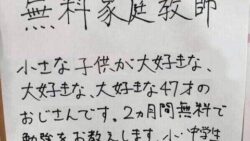 無料家庭教師
小さな子供が大好きな、
大好きな、大好きな47才の
おじさんです。2ヵ月間無料で
勉強をお教えします。小・中学生